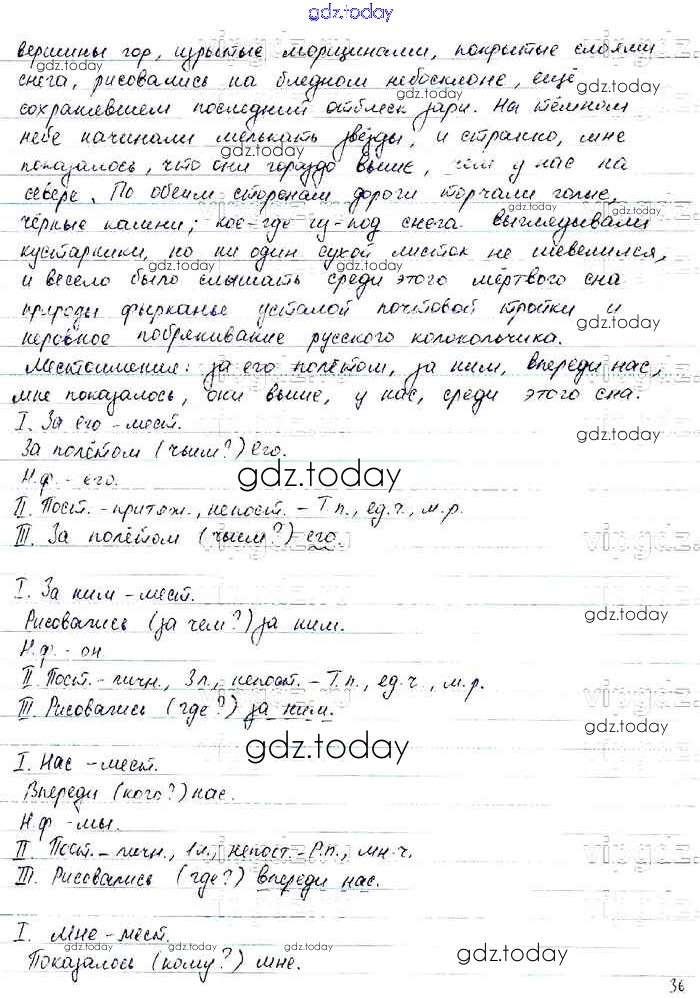 gdz.today
вершины гор, изрытые морщинами, покрытые слоями
снега, рисовались на бледном небосклоне, ещё
сохранявшем последний отблеск зари. На тёмном
небе начинали мелькать звёзды, и странно, мне
показалось, что они гораздо выше, чем у нас на
севере. По обеим сторонам дороги торчали голые,
чёрные камни; кое-где из-под снега выглядывали
кустарники, но ни один сухой листок не шевелился,
и весело было слышать среди этого мёртвого сна
природы фырканье усталой почтовой тройки и
неровное побрякивание русского колокольчика.
Местоимения: за его полётом, за ним, впереди нас,
мне показалось, они выше, у нас, среди этого сна.
I. За его - мест.
За полётом (чьим?) его.
Н.ф. - его.
gdz.today
II. Пост. - притяж., непост. - Т.п., ед.ч., м.р.
III. За полётом (чьим?) его.
I. За ним - мест.
Рисовались (за чем?) за ним.
Н.ф. - он
II. Пост. - личн., 3 л., непост. - Т.п., ед.ч., м.р.
III. Рисовались (где?) за ним.
gdz.today
I. Нас - мест.
Впереди (кого?) нас.
Н.ф - мы.
II. Пост. - личн., 1 л., непост. - Р.п., мн.ч.
III. Рисовались (где?) впереди нас.
I. Мне - мест.
Показалось (кому?) мне.
gdz.today
36